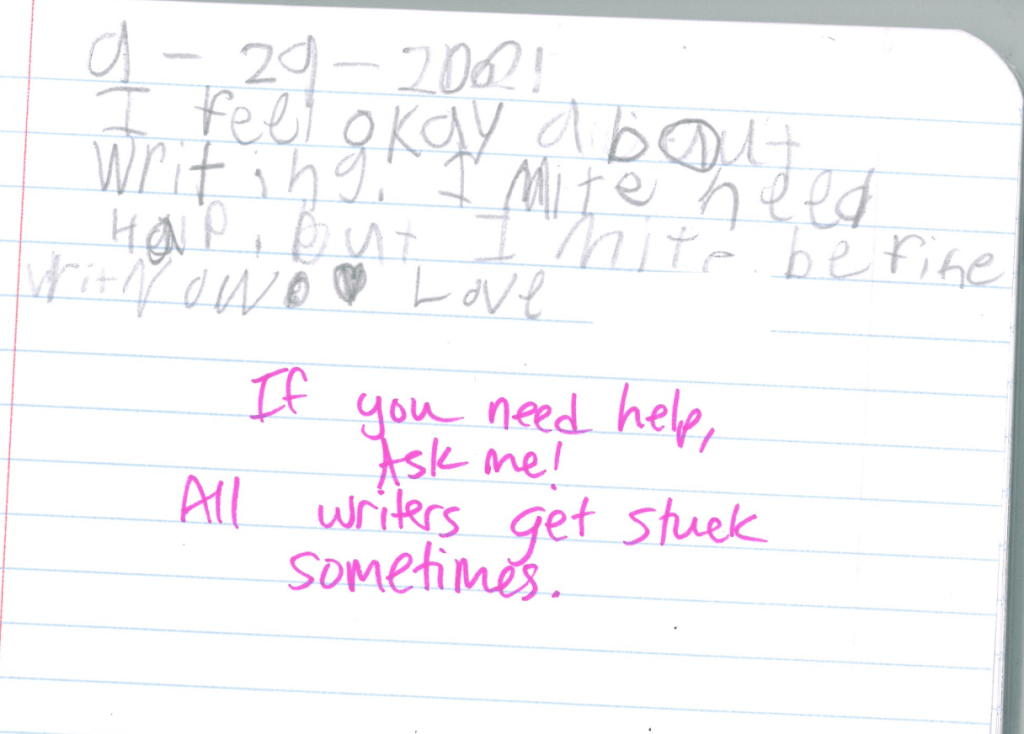 9 - 29 - 2021
I feel okay about
writing. I mite need
Halp. But I mite be fine
writ Now. ♥ Love
If you need help,
Ask me!
All writers get stuck
sometimes.